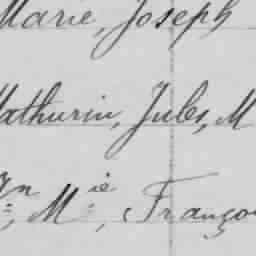 Marie, Joseph
Mathurin, Jules, M
Jn, Mie, Franço